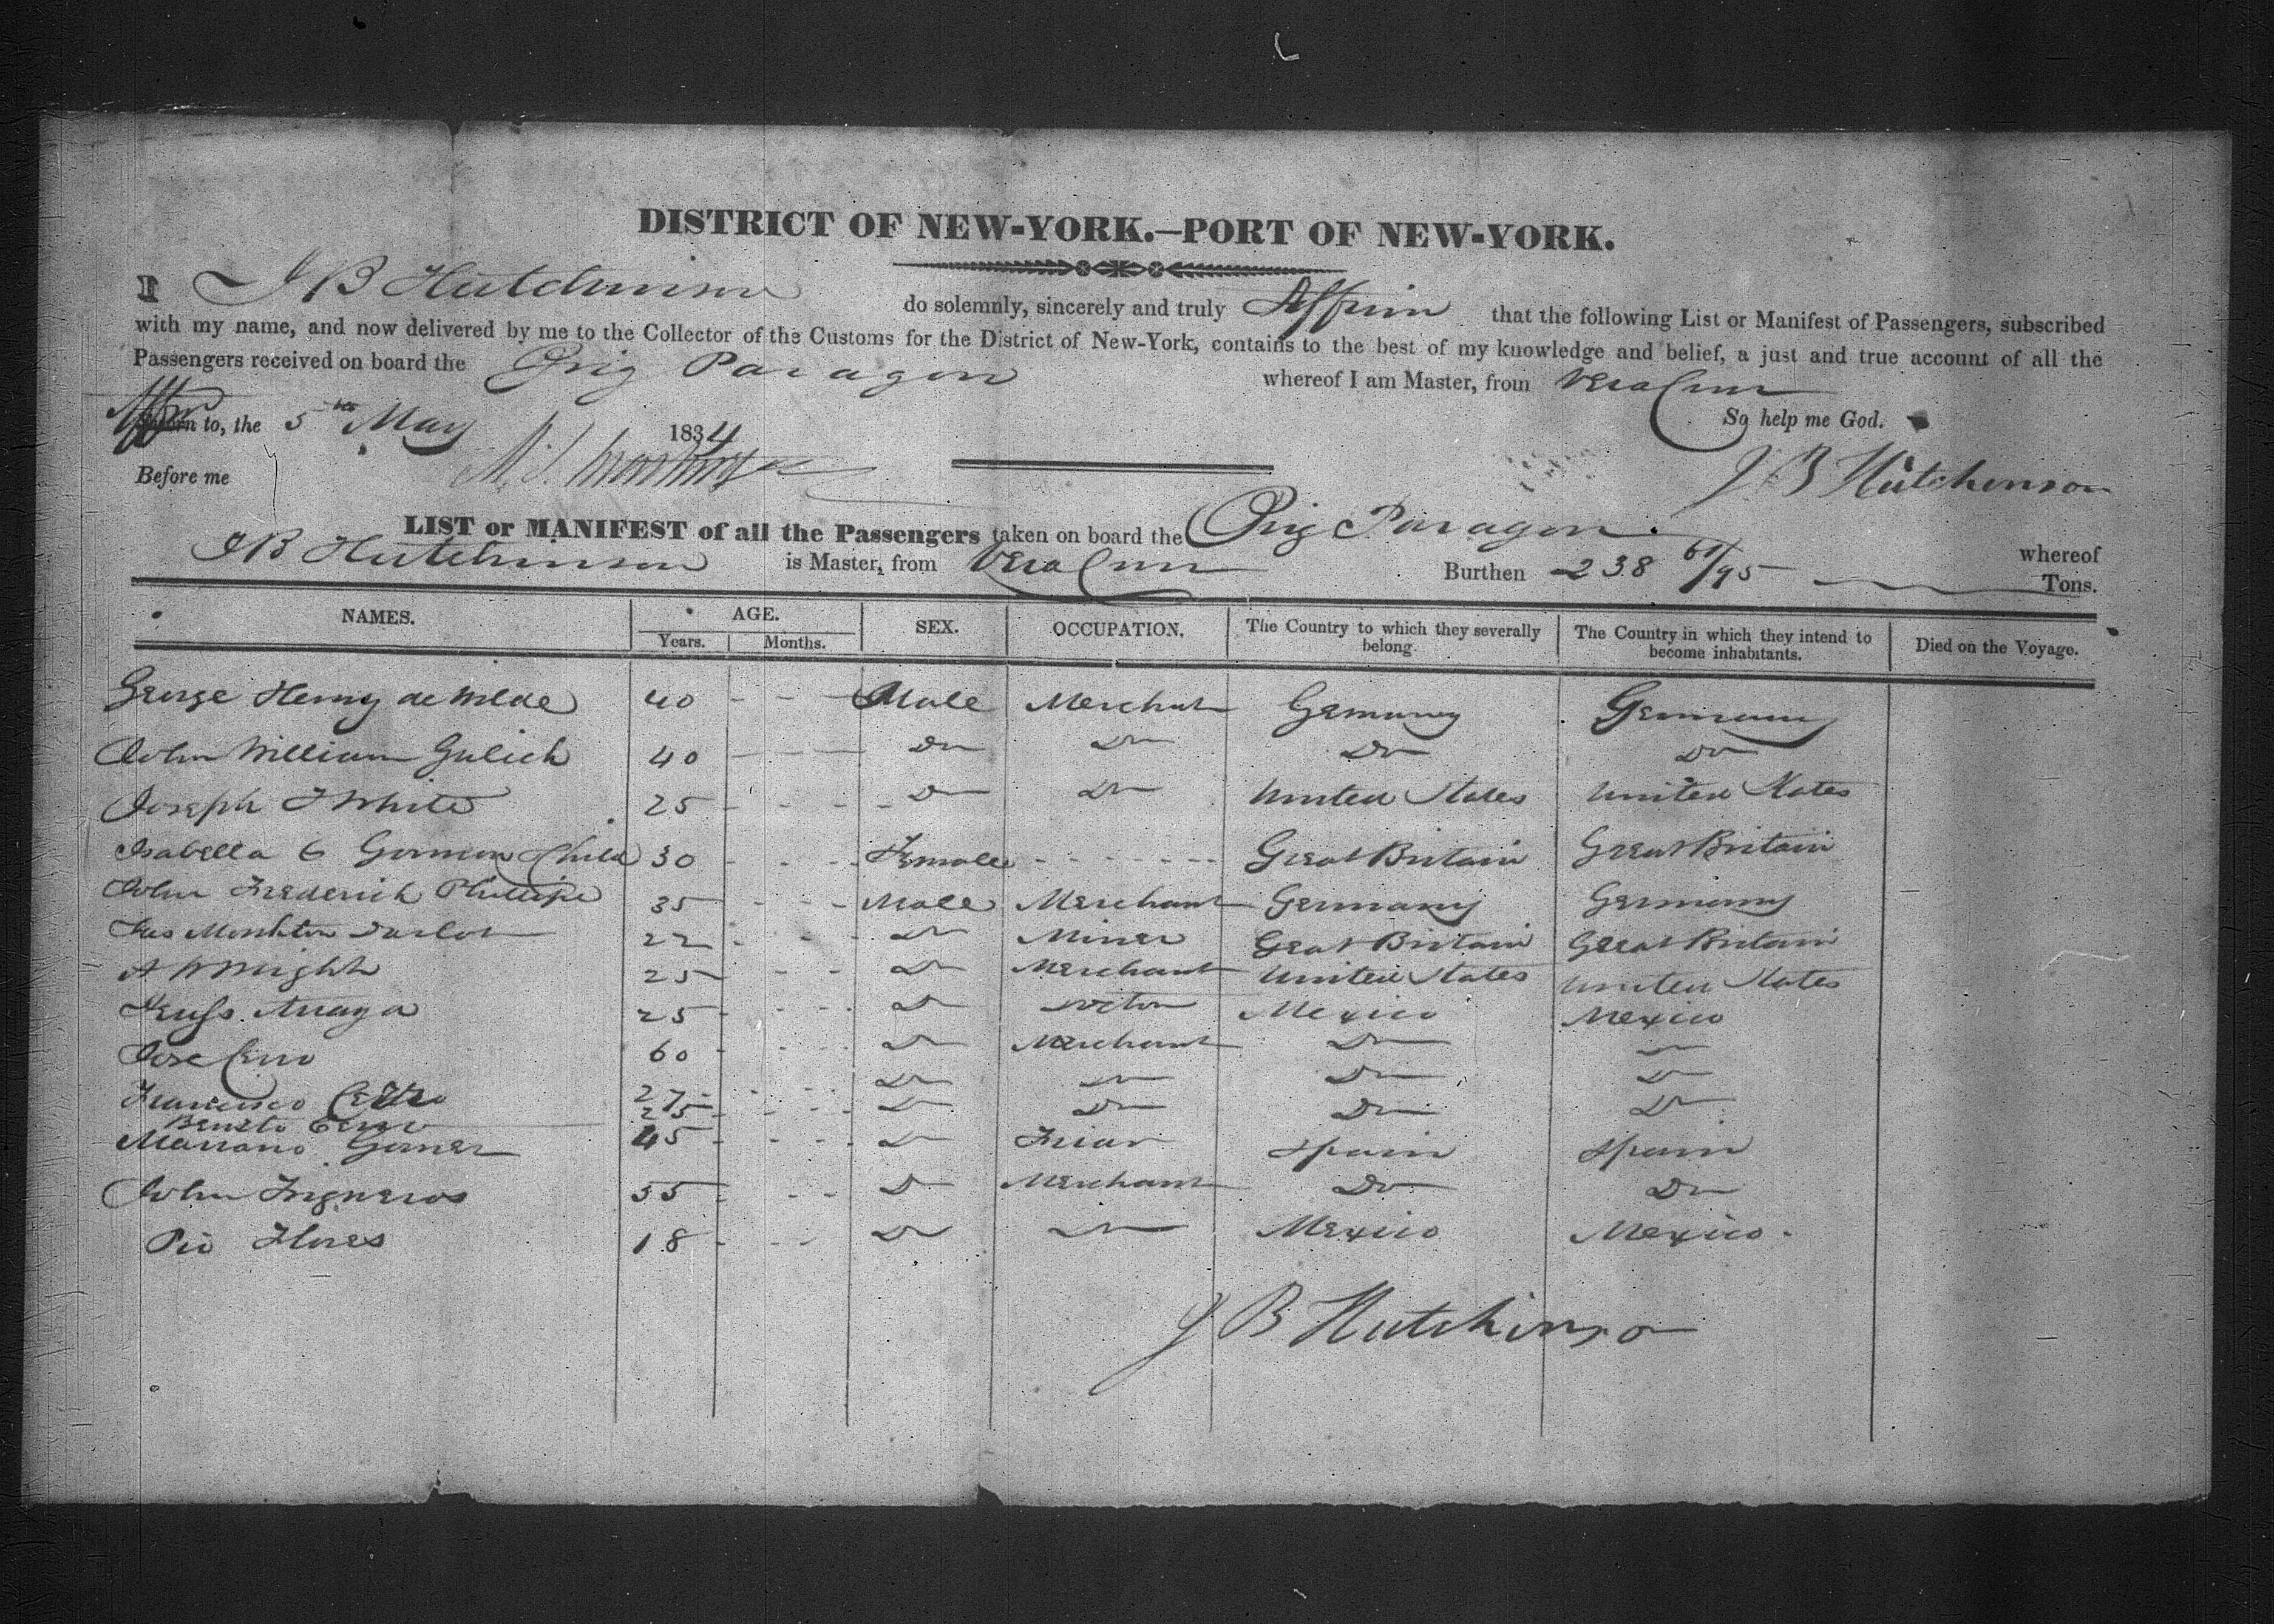 DISTRICT OF NEW-YORK.—PORT OF NEW-YORK.
I J B Hutchinson do solemnly, sincerely and truly Affirm that the following List or Manifest of Passengers, subscribed
with my name, and now delivered by me to the Collector of the Customs for the District of New-York, contains to the best of my knowledge and belief, a just and true account of all the
Passengers received on board the Brig Paragon whereof I am Master, from Vera Cruz
to, the 5th May 1834 So help me God.
Before me J B Hutchinson
LIST or MANIFEST of all the Passengers taken on board the Brig Paragon whereof
J B Hutchinson is Master, from Vera Cruz Burthen 238 61/95 Tons.
NAMES. AGE. Years. Months. SEX. OCCUPATION. The Country to which they severally belong. The Country in which they intend to become inhabitants. Died on the Voyage.
George Henry de Wilde 40 - - - Male Merchant Germany Germany
John William Gulich 40 - - - Do Do Do Do
Joseph T White 25 - - - Do Do United States United States
Isabella C Gorman Child 30 - - - Female - - - Great Britain Great Britain
John Frederick 35 - - - Male Merchant Germany Germany
22 - - - Do Miner Great Britain Great Britain
A W Wright 25 - - - Do Merchant United States United States
25 - - - Do Doctor Mexico Mexico
Jose 60 - - - Do Merchant Do Do
Francisco 27 - - - Do Do Do Do
Benito 25 - - - Do Do Do Do
Mariano Gomez 45 - - - Do Friar Spain Spain
John 55 - - - Do Merchant Do Do
Pio Flores 18 - - - Do Do Mexico Mexico.
J B Hutchinson